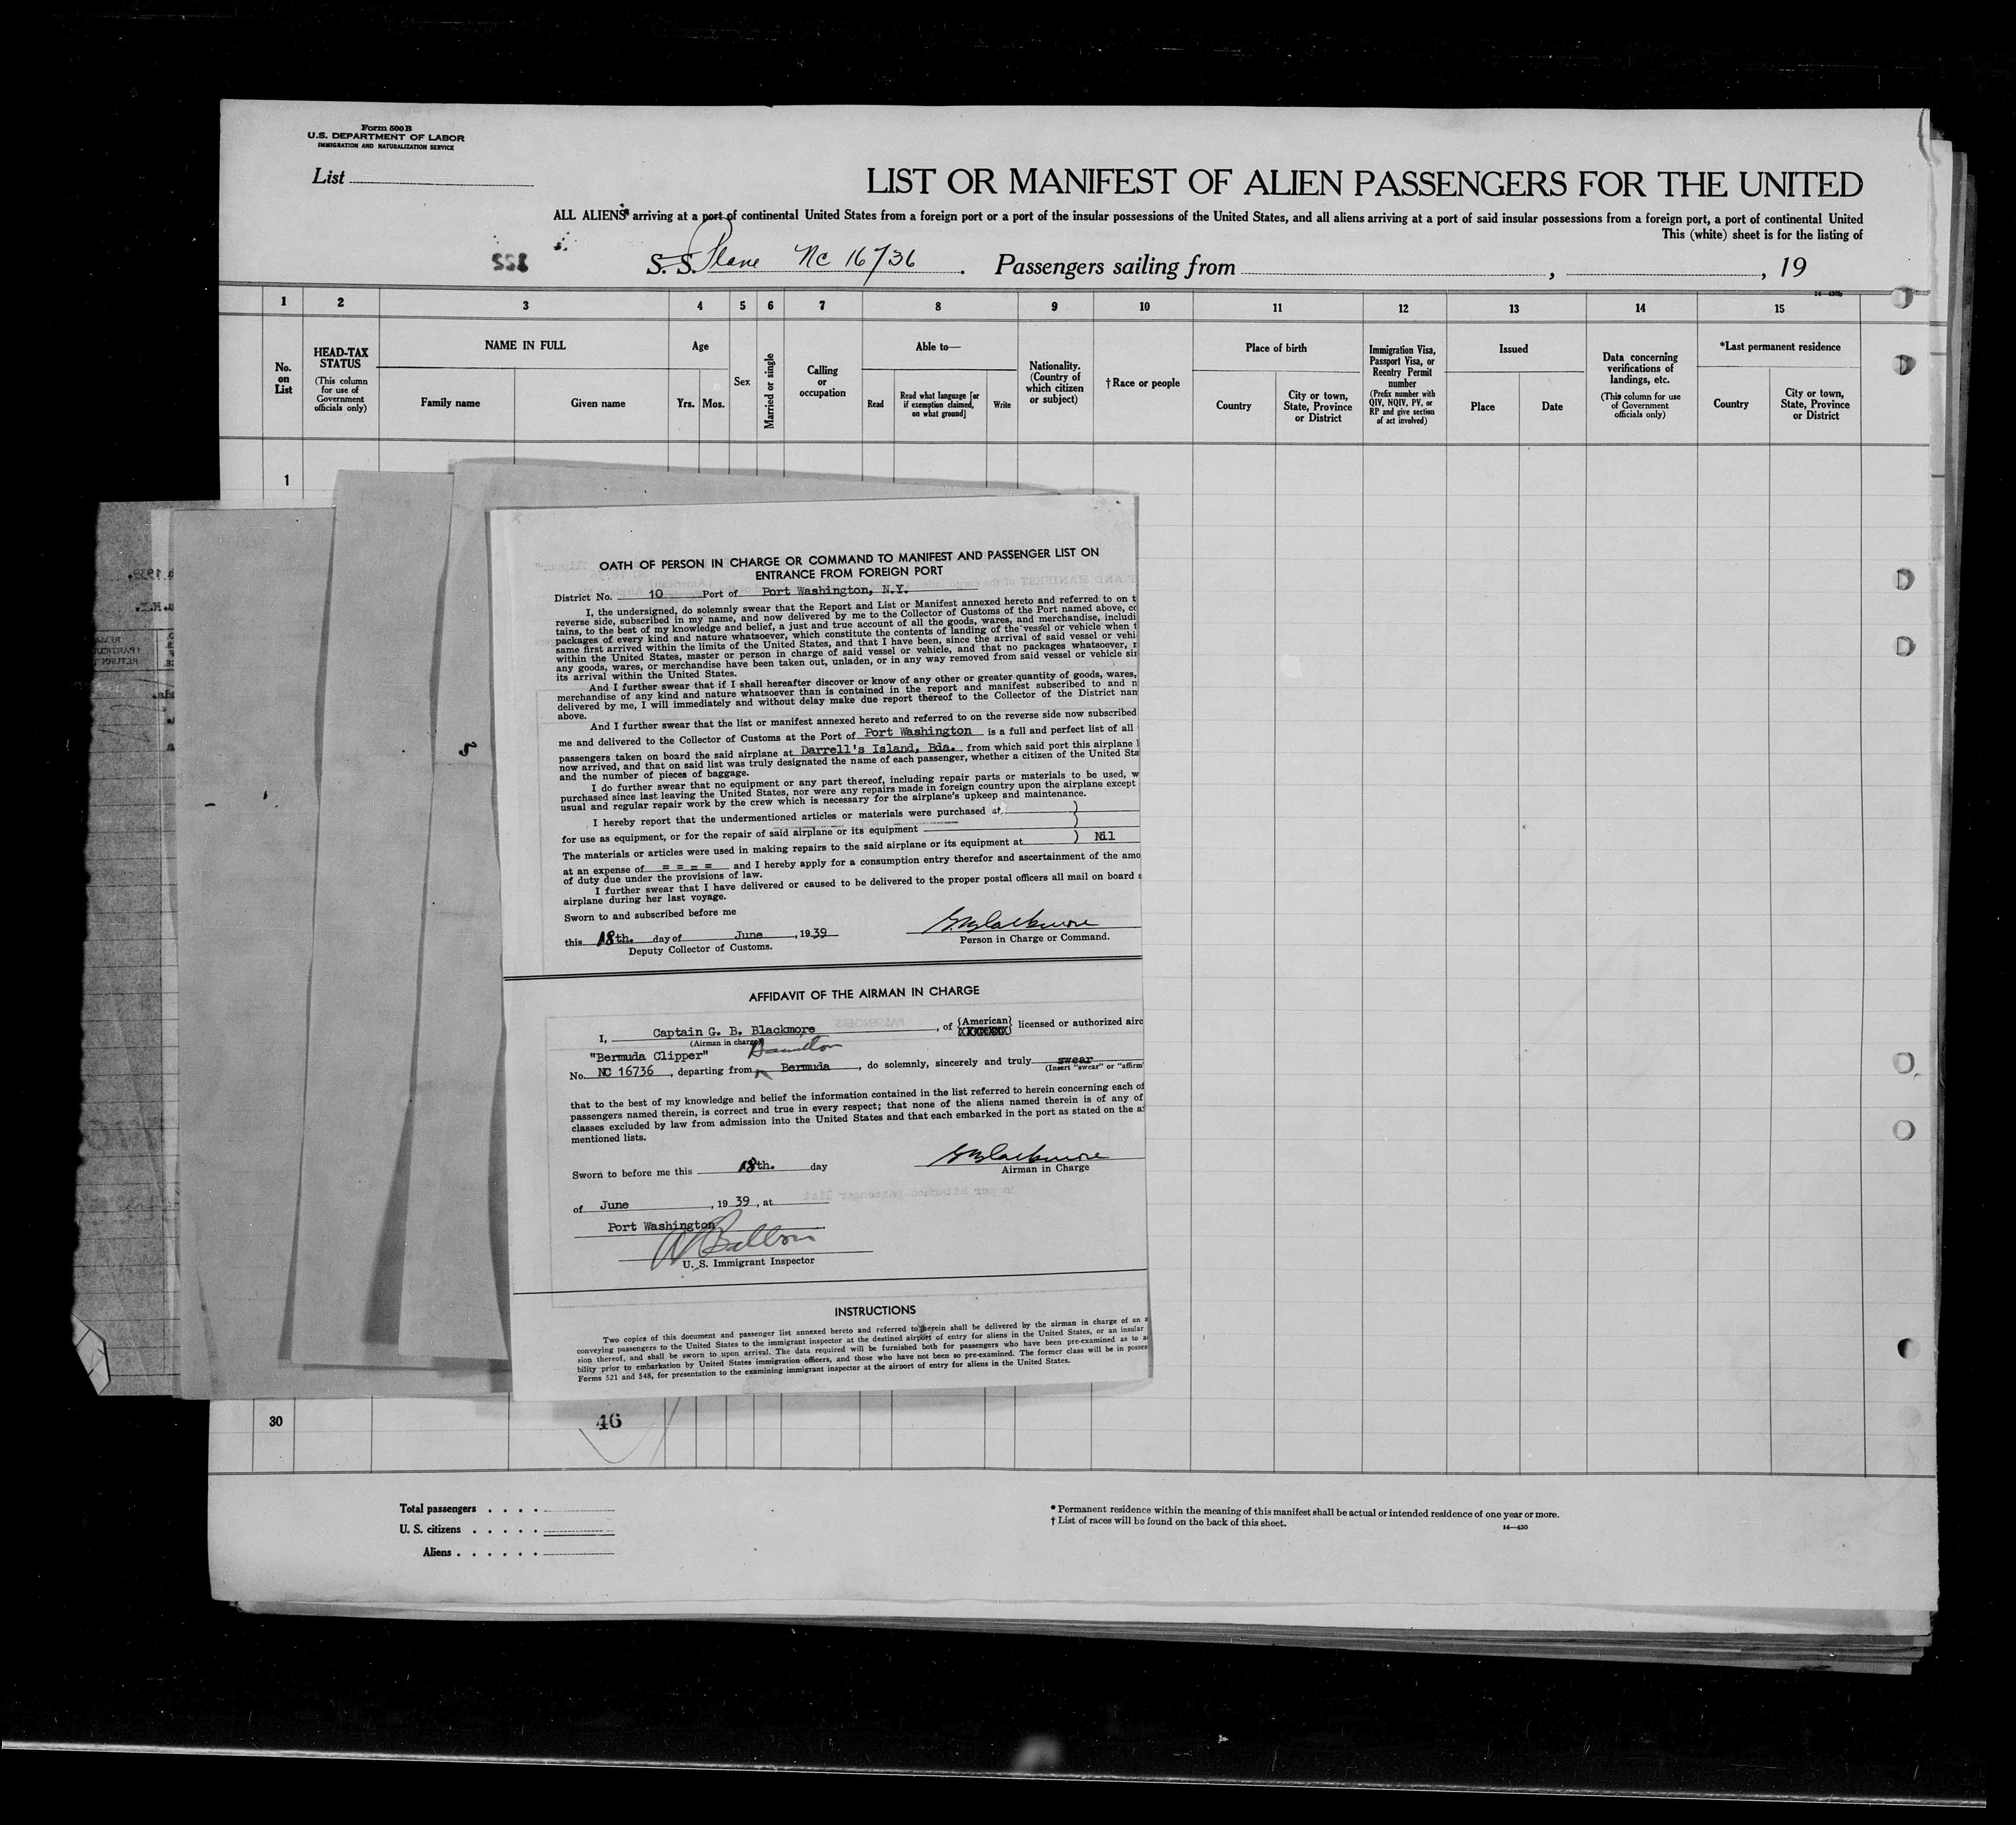 Form 500B
U.S. DEPARTMENT OF LABOR
IMMIGRATION AND NATURALIZATION SERVICE
List
LIST OR MANIFEST OF ALIEN PASSENGERS FOR THE UNITED
ALL ALIENS arriving at a port of continental United States from a foreign port or a port of the insular possessions of the United States, and all aliens arriving at a port of said insular possessions from a foreign port, a port of continental United
This (white) sheet is for the listing of
S. S. Plane NC 16736 . Passengers sailing from , , 19
14—430b
1 2 3 4 5 6 7 8 9 10 11 12 13 14 15
No. on List
HEAD-TAX STATUS
(This column for use of Government officials only)
NAME IN FULL
Family name
Given name
Age
Yrs.
Mos.
Sex
Married or single
Calling or occupation
Able to—
Read
Read what language [or if exemption claimed, on what ground]
Write
Nationality. (Country of which citizen or subject)
† Race or people
Place of birth
Country
City or town, State, Province or District
Immigration Visa, Passport Visa, or Reentry Permit number
(Prefix number with QIV, NQIV, PV, or RP and give section of act involved)
Issued
Place
Date
Data concerning verifications of landings, etc.
(This column for use of Government officials only)
*Last permanent residence
Country
City or town, State, Province or District
1
OATH OF PERSON IN CHARGE OR COMMAND TO MANIFEST AND PASSENGER LIST ON
ENTRANCE FROM FOREIGN PORT
District No. 10 Port of Port Washington, N.Y.
I, the undersigned, do solemnly swear that the Report and List or Manifest annexed hereto and referred to on t
reverse side, subscribed in my name, and now delivered by me to the Collector of Customs of the Port named above, co
tains, to the best of my knowledge and belief, a just and true account of all the goods, wares, and merchandise, includi
packages of every kind and nature whatsoever, which constitute the contents of landing of the vessel or vehicle when t
same first arrived within the limits of the United States, and that I have been, since the arrival of said vessel or vehi
within the United States, master or person in charge of said vessel or vehicle, and that no packages whatsoever, r
any goods, wares, or merchandise have been taken out, unladen, or in any way removed from said vessel or vehicle sin
its arrival within the United States.
And I further swear that if I shall hereafter discover or know of any other or greater quantity of goods, wares,
merchandise of any kind and nature whatsoever than is contained in the report and manifest subscribed to and n
delivered by me, I will immediately and without delay make due report thereof to the Collector of the District nam
above.
And I further swear that the list or manifest annexed hereto and referred to on the reverse side now subscribed
me and delivered to the Collector of Customs at the Port of Port Washington is a full and perfect list of all
passengers taken on board the said airplane at Darrell's Island, Bda. from which said port this airplane
now arrived, and that on said list was truly designated the name of each passenger, whether a citizen of the United Sta
and the number of pieces of baggage.
I do further swear that no equipment or any part thereof, including repair parts or materials to be used, w
purchased since last leaving the United States, nor were any repairs made in foreign country upon the airplane except
usual and regular repair work by the crew which is necessary for the airplane's upkeep and maintenance.
I hereby report that the undermentioned articles or materials were purchased at
for use as equipment, or for the repair of said airplane or its equipment
The materials or articles were used in making repairs to the said airplane or its equipment at ) Nil
at an expense of = = = = and I hereby apply for a consumption entry therefor and ascertainment of the amo
of duty due under the provisions of law.
I further swear that I have delivered or caused to be delivered to the proper postal officers all mail on board s
airplane during her last voyage.
Sworn to and subscribed before me
this 18th. day of June , 1939 GBBlackmore
Deputy Collector of Customs. Person in Charge or Command.
AFFIDAVIT OF THE AIRMAN IN CHARGE
I, Captain G. B. Blackmore , of {American} licensed or authorized airc
(Airman in charge)
"Bermuda Clipper" Hamilton
No. NC 16736 , departing from Bermuda , do solemnly, sincerely and truly swear
(Insert "swear" or "affirm
that to the best of my knowledge and belief the information contained in the list referred to herein concerning each of
passengers named therein, is correct and true in every respect; that none of the aliens named therein is of any of
classes excluded by law from admission into the United States and that each embarked in the port as stated on the a
mentioned lists.
Sworn to before me this 18th. day GBBlackmore
Airman in Charge
of June , 19 39 , at
Port Washington
U. S. Immigrant Inspector
INSTRUCTIONS
Two copies of this document and passenger list annexed hereto and referred to herein shall be delivered by the airman in charge of an a
conveying passengers to the United States to the immigrant inspector at the destined airport of entry for aliens in the United States, or an insular
sion thereof, and shall be sworn to upon arrival. The data required will be furnished both for passengers who have been pre-examined as to a
bility prior to embarkation by United States immigration officers, and those who have not been so pre-examined. The former class will be in posses
Forms 521 and 548, for presentation to the examining immigrant inspector at the airport of entry for aliens in the United States.
30
46
Total passengers
U. S. citizens
Aliens
* Permanent residence within the meaning of this manifest shall be actual or intended residence of one year or more.
† List of races will be found on the back of this sheet.
14—430